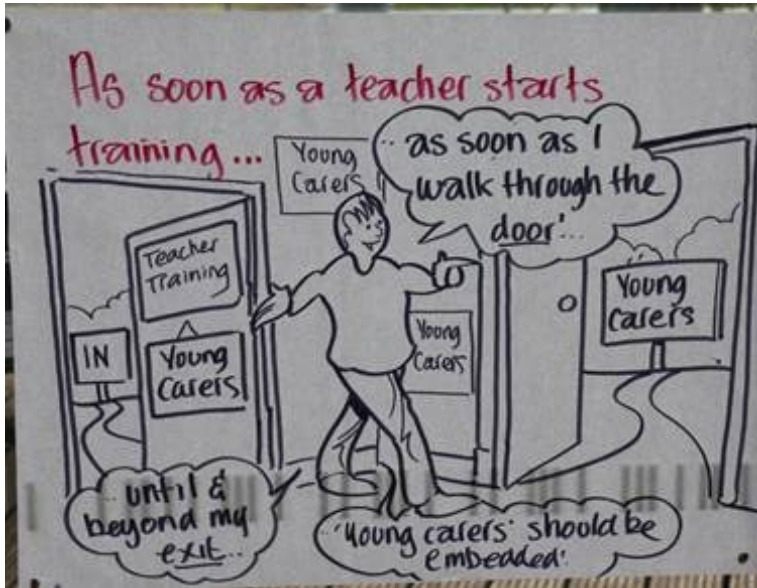 As soon as a teacher starts
training...
Young
Carers
.. as soon as I
walk through the
door'...
Teacher
Training
IN
Young
Carers
Young
Carers
Young
Carers
.. until &
beyond my
exit...
..'Young carers' should be
embedded'.